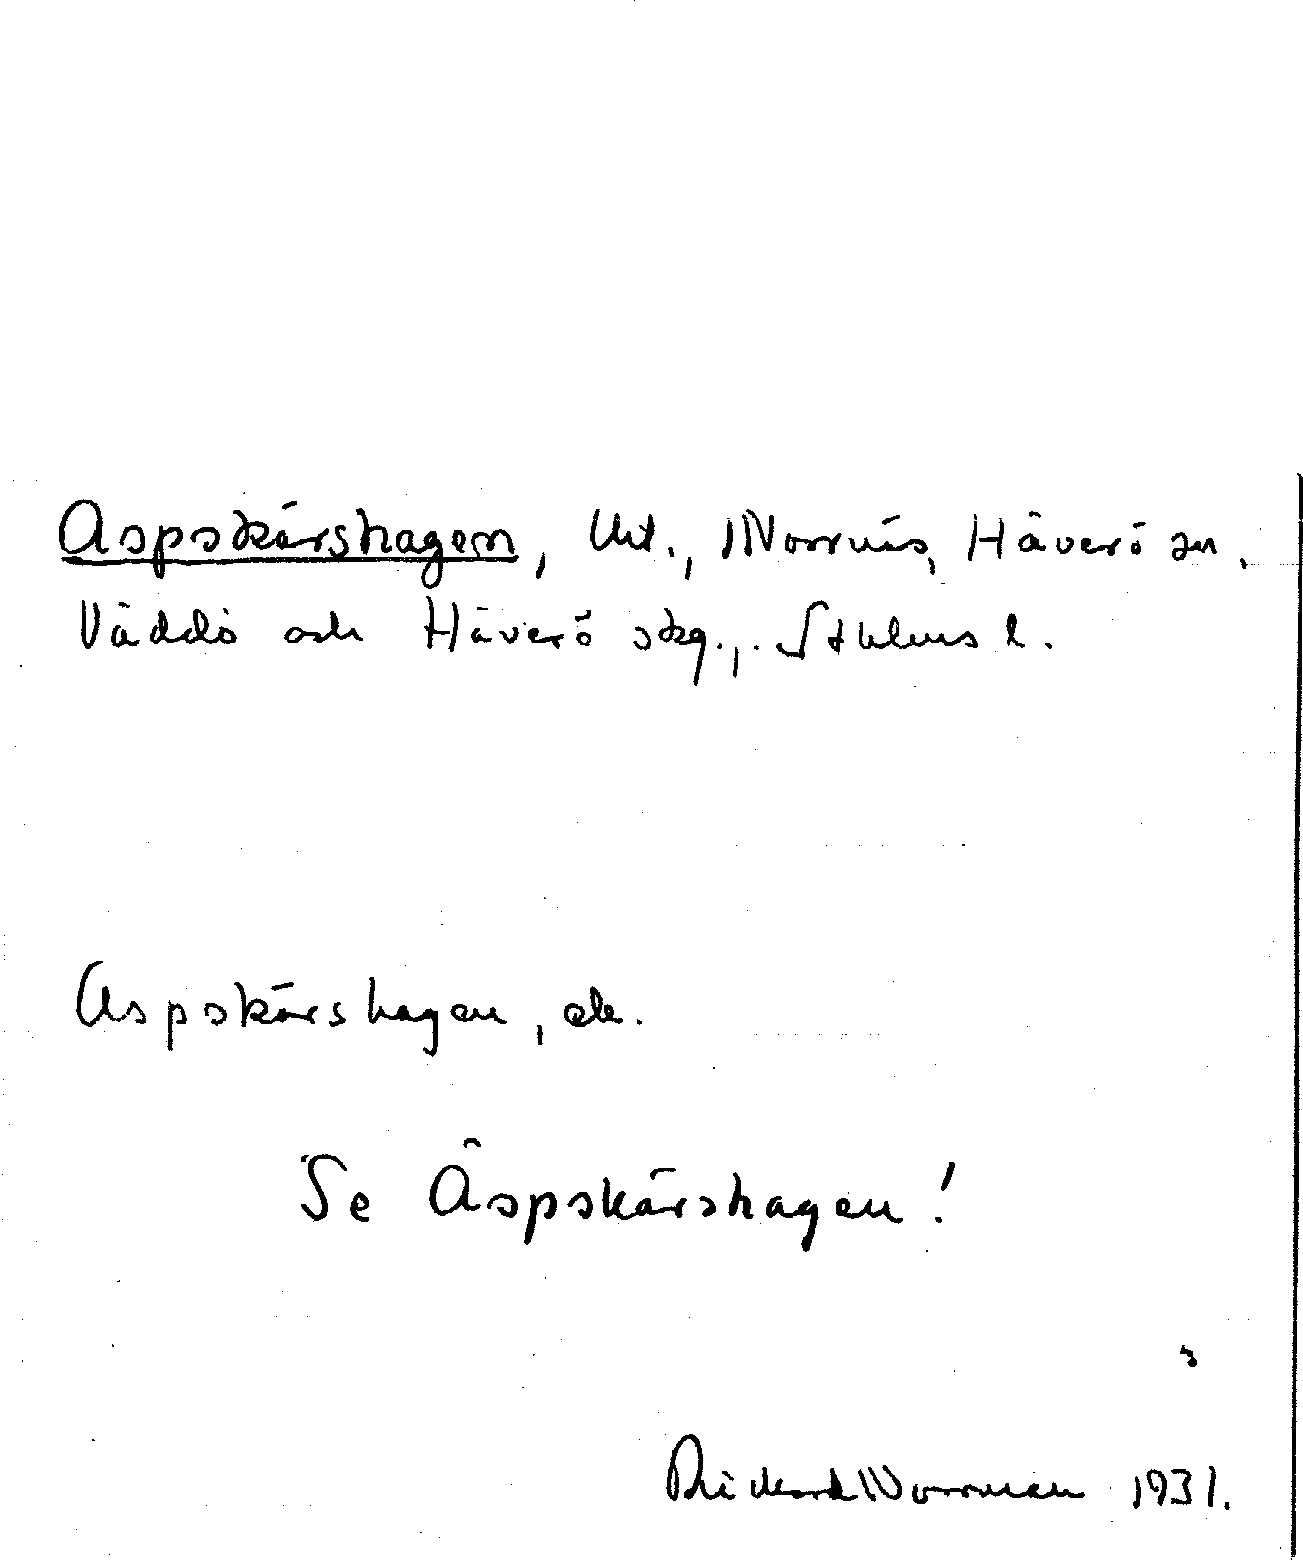 Aspskärshagen, Utl., Norrnäs, Häverö sn,
Väddö och Häverö skg., Sthlms l.
Aspskärshagen, ek.
Se Äspskärshagen!
Rickard Norrman 1931.